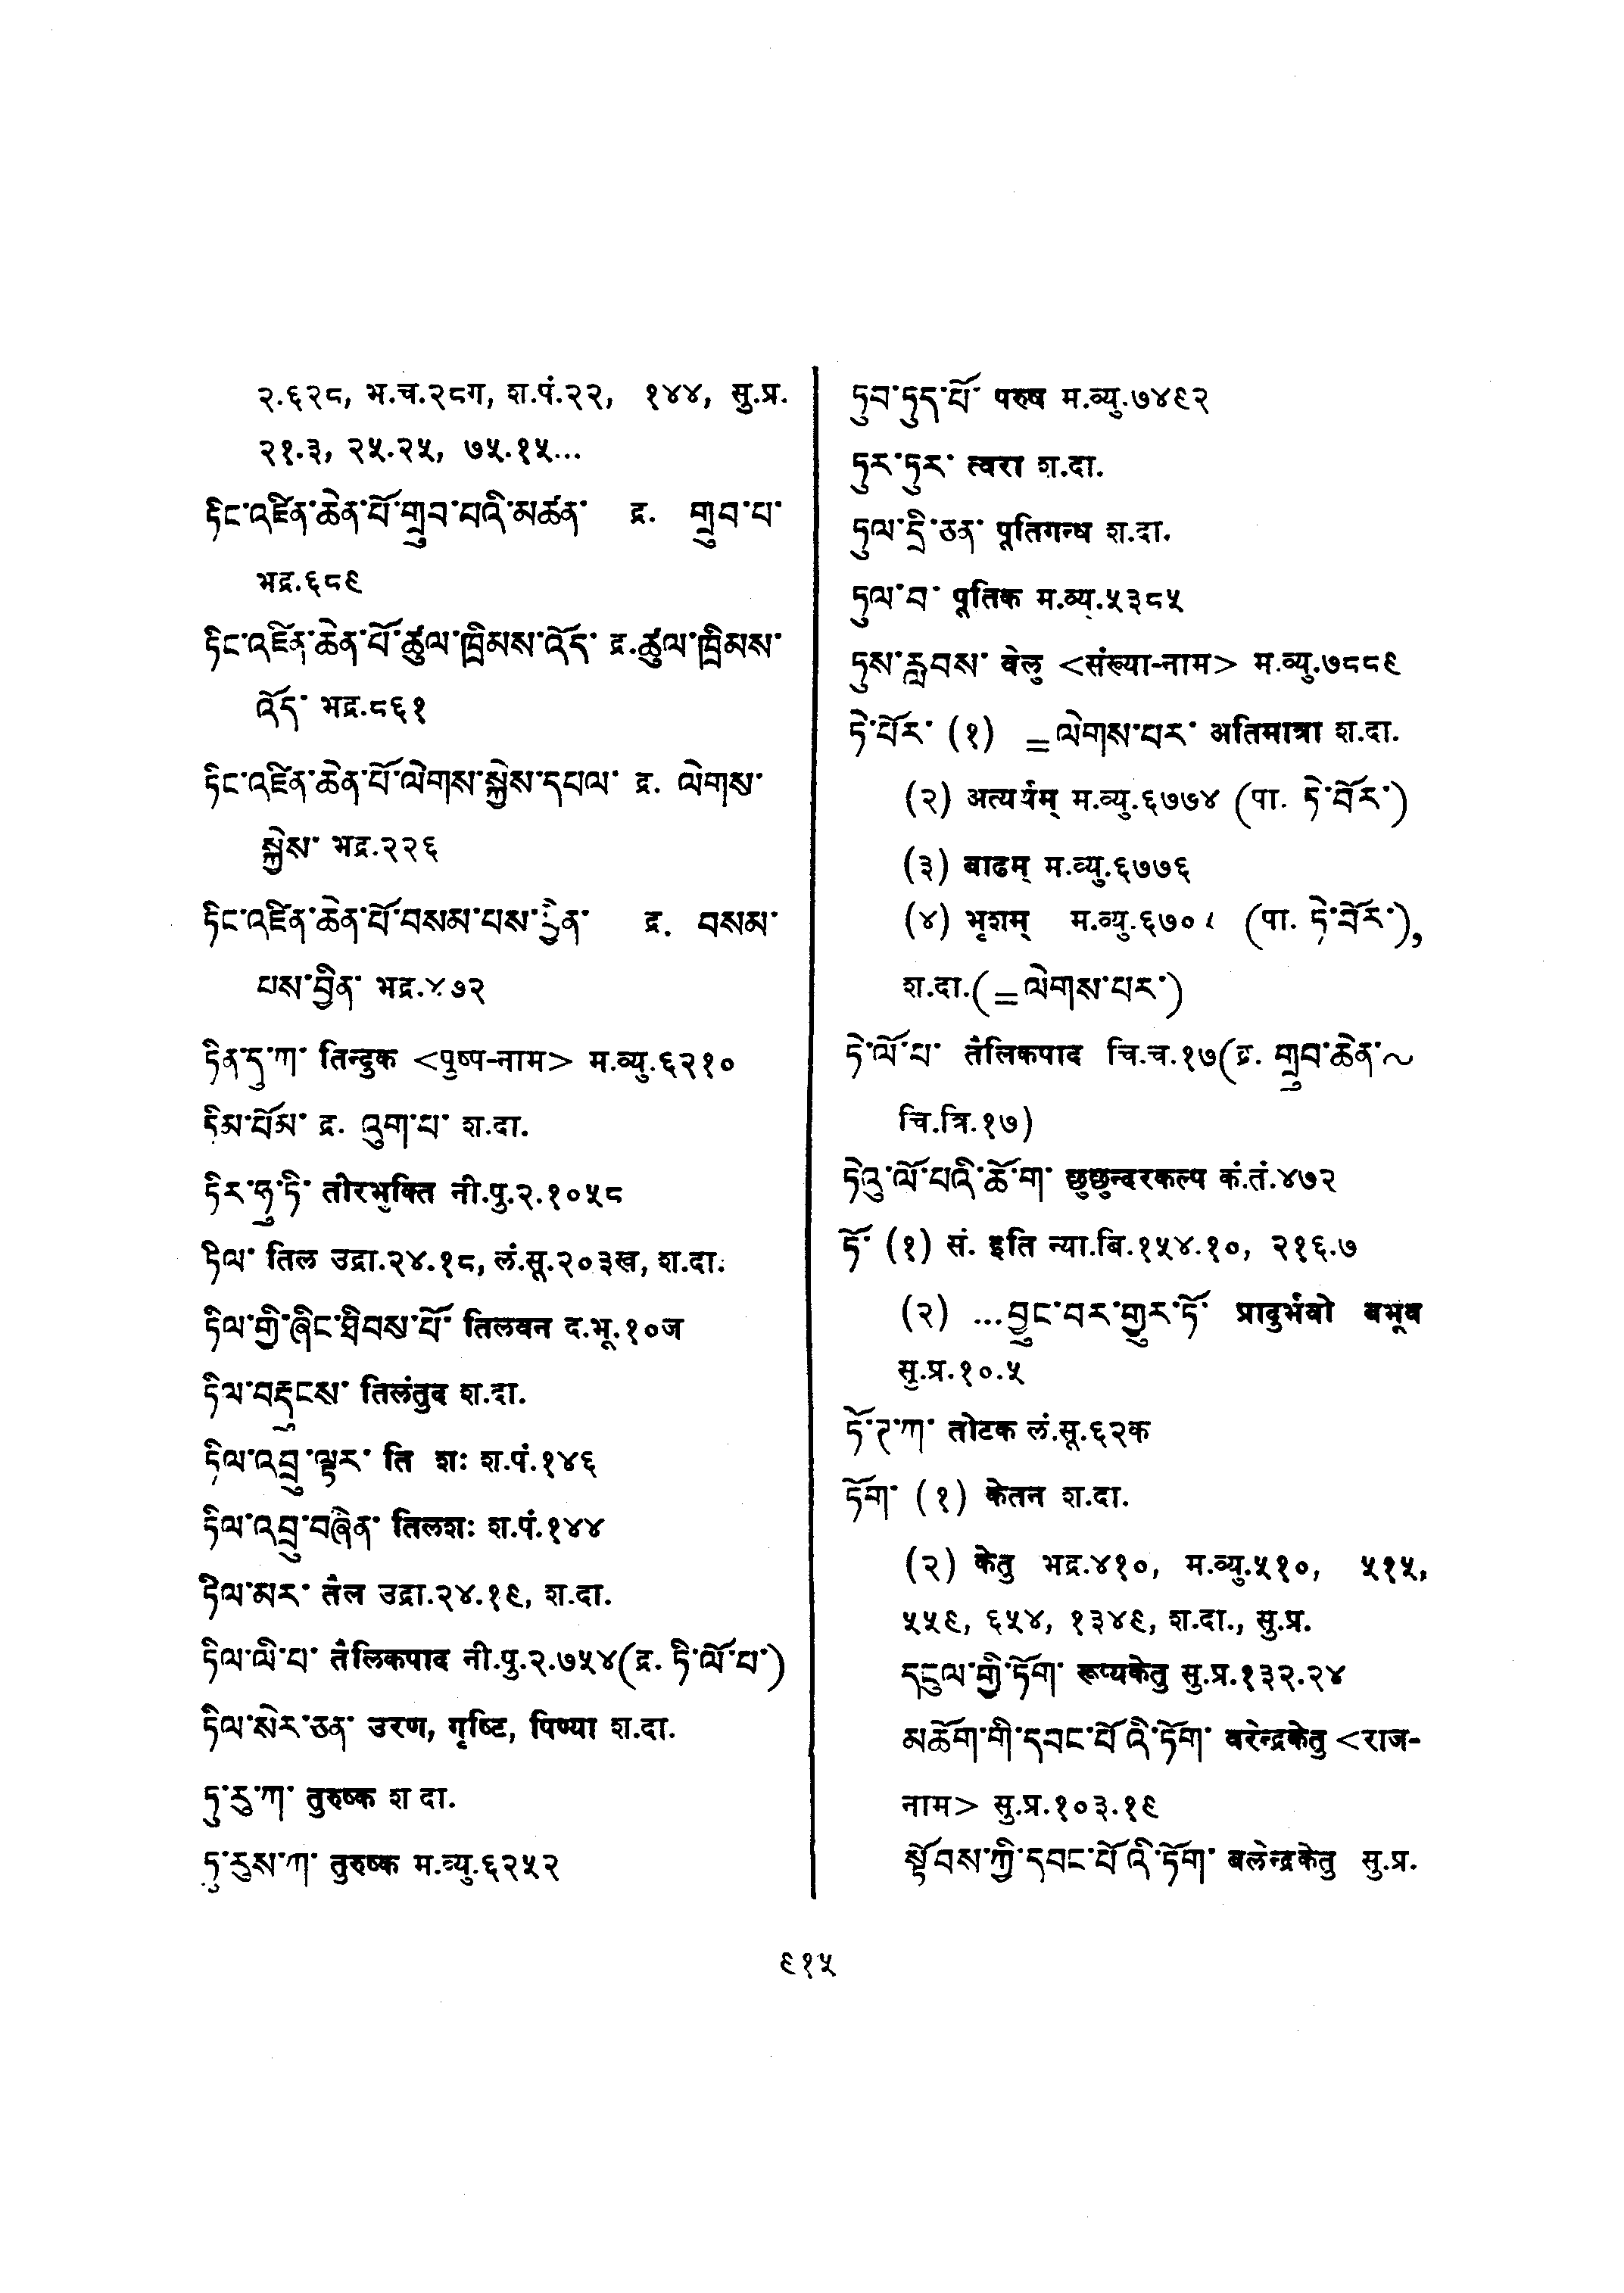 २.६२८, भ.च.२८ग, श.पं.२२, १४४, सु.प्र.
२१.३, २५.२५, ७५.१५...
ཏིང་འཛིན་ཆེན་པོ་གྲུབ་པའི་མཚན་ द्र. གྲུབ་པ་
भद्र.६८९
ཏིང་འཛིན་ཆེན་པོ་ཚུལ་ཁྲིམས་འོད་ द्र.ཚུལ་ཁྲིམས་
འོད་ भद्र.८६१
ཏིང་འཛིན་ཆེན་པོ་ལེགས་སྐྱེས་དཔལ་ द्र. ལེགས་
སྐྱེས་ भद्र.२२६
ཏིང་འཛིན་ཆེན་པོ་བསམ་པས་ द्र. བསམ་
པས་བྱིན་ भद्र.४७२
ཏིན་དུ་ཀ་ तिन्दुक <पुष्प-नाम> म.व्यु.६२१०
ཏིམ་པོམ་ द्र. འུག་པ་ श.दा.
ཏིར་ཧུ་ཏི་ तीरभुक्ति नी.पु.२.१०५८
ཏིལ་ तिल उद्रा.२४.१८, लं.सू.२०३ख, श.दा.
ཏིལ་གྱི་ཞིང་ཐིབས་པོ་ तिलवन द.भू.१०ज
ཏིལ་བརྡུངས་ तिलंतुद श.दा.
ཏིལ་འབྲུ་ལྟར་ ति शः श.पं.१४६
ཏིལ་འབྲུ་བཞིན་ तिलशः श.पं.१४४
ཏིལ་མར་ तैल उद्रा.२४.१९, श.दा.
ཏིལ་ལི་པ་ तैलिकपाद नी.पु.२.७५४(द्र. ཏི་ལོ་པ་)
ཏིལ་སེར་ཅན་ उरण, गृष्टि, पिण्या श.दा.
ཏུ་རུ་ཀ་ तुरुष्क श दा.
ཏུ་རུས་ཀ་ तुरुष्क म.व्यु.६२५२
ཏུབ་ཏུད་པོ་ परुष म.व्यु.७४९२
ཏུར་ཏུར་ त्वरा श.दा.
ཏུལ་དྲི་ཅན་ पूतिगन्ध श.दा.
ཏུལ་བ་ पूतिक म.व्यु.५३८५
ཏུས་རླབས་ वेलु <संख्या-नाम> म.व्यु.७८८९
ཏེ་པོར་ (१) =ལེགས་པར་ अतिमात्रा श.दा.
(२) अत्यर्यम् म.व्यु.६७७४ (पा. ཏེ་བོར་)
(३) बाढम् म.व्यु.६७७६
(४) भृशम् म.व्यु.६७० (पा. ཏེ་བོར་),
श.दा.(=ལེགས་པར་)
ཏེ་ལོ་པ་ तैलिकपाद चि.च.१७(द्र. གྲུབ་ཆེན་~
चि.त्रि.१७)
ཏེའུ་ལོ་པའི་ཆོ་ག་ छुछुन्दरकल्प कं.तं.४७२
ཏོ་ (१) सं. इति न्या.बि.१५४.१०, २१६.७
(२) ...བྱུང་བར་གྱུར་ཏོ་ प्रादुर्भवो बभूव
सु.प्र.१०.५
ཏོ་ཊ་ཀ་ तोटक लं.सू.६२क
ཏོག་ (१) केतन श.दा.
(२) केतु भद्र.४१०, म.व्यु.५१०, ५१५,
५५९, ६५४, १३४९, श.दा., सु.प्र.
དངུལ་གྱི་ཏོག་ रूप्यकेतु सु.प्र.१३२.२४
མཆོག་གི་དབང་པོའི་ཏོག་ वरेन्द्रकेतु <राज-
नाम> सु.प्र.१०३.१९
སྟོབས་ཀྱི་དབང་པོའི་ཏོག་ बलेन्द्रकेतु सु.प्र.
९१५